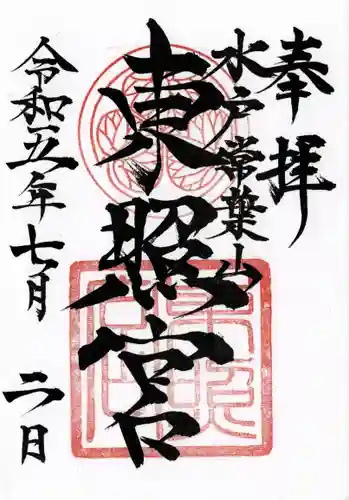 奉拝
水戸常葉山
東照宮
令和五年七月二日